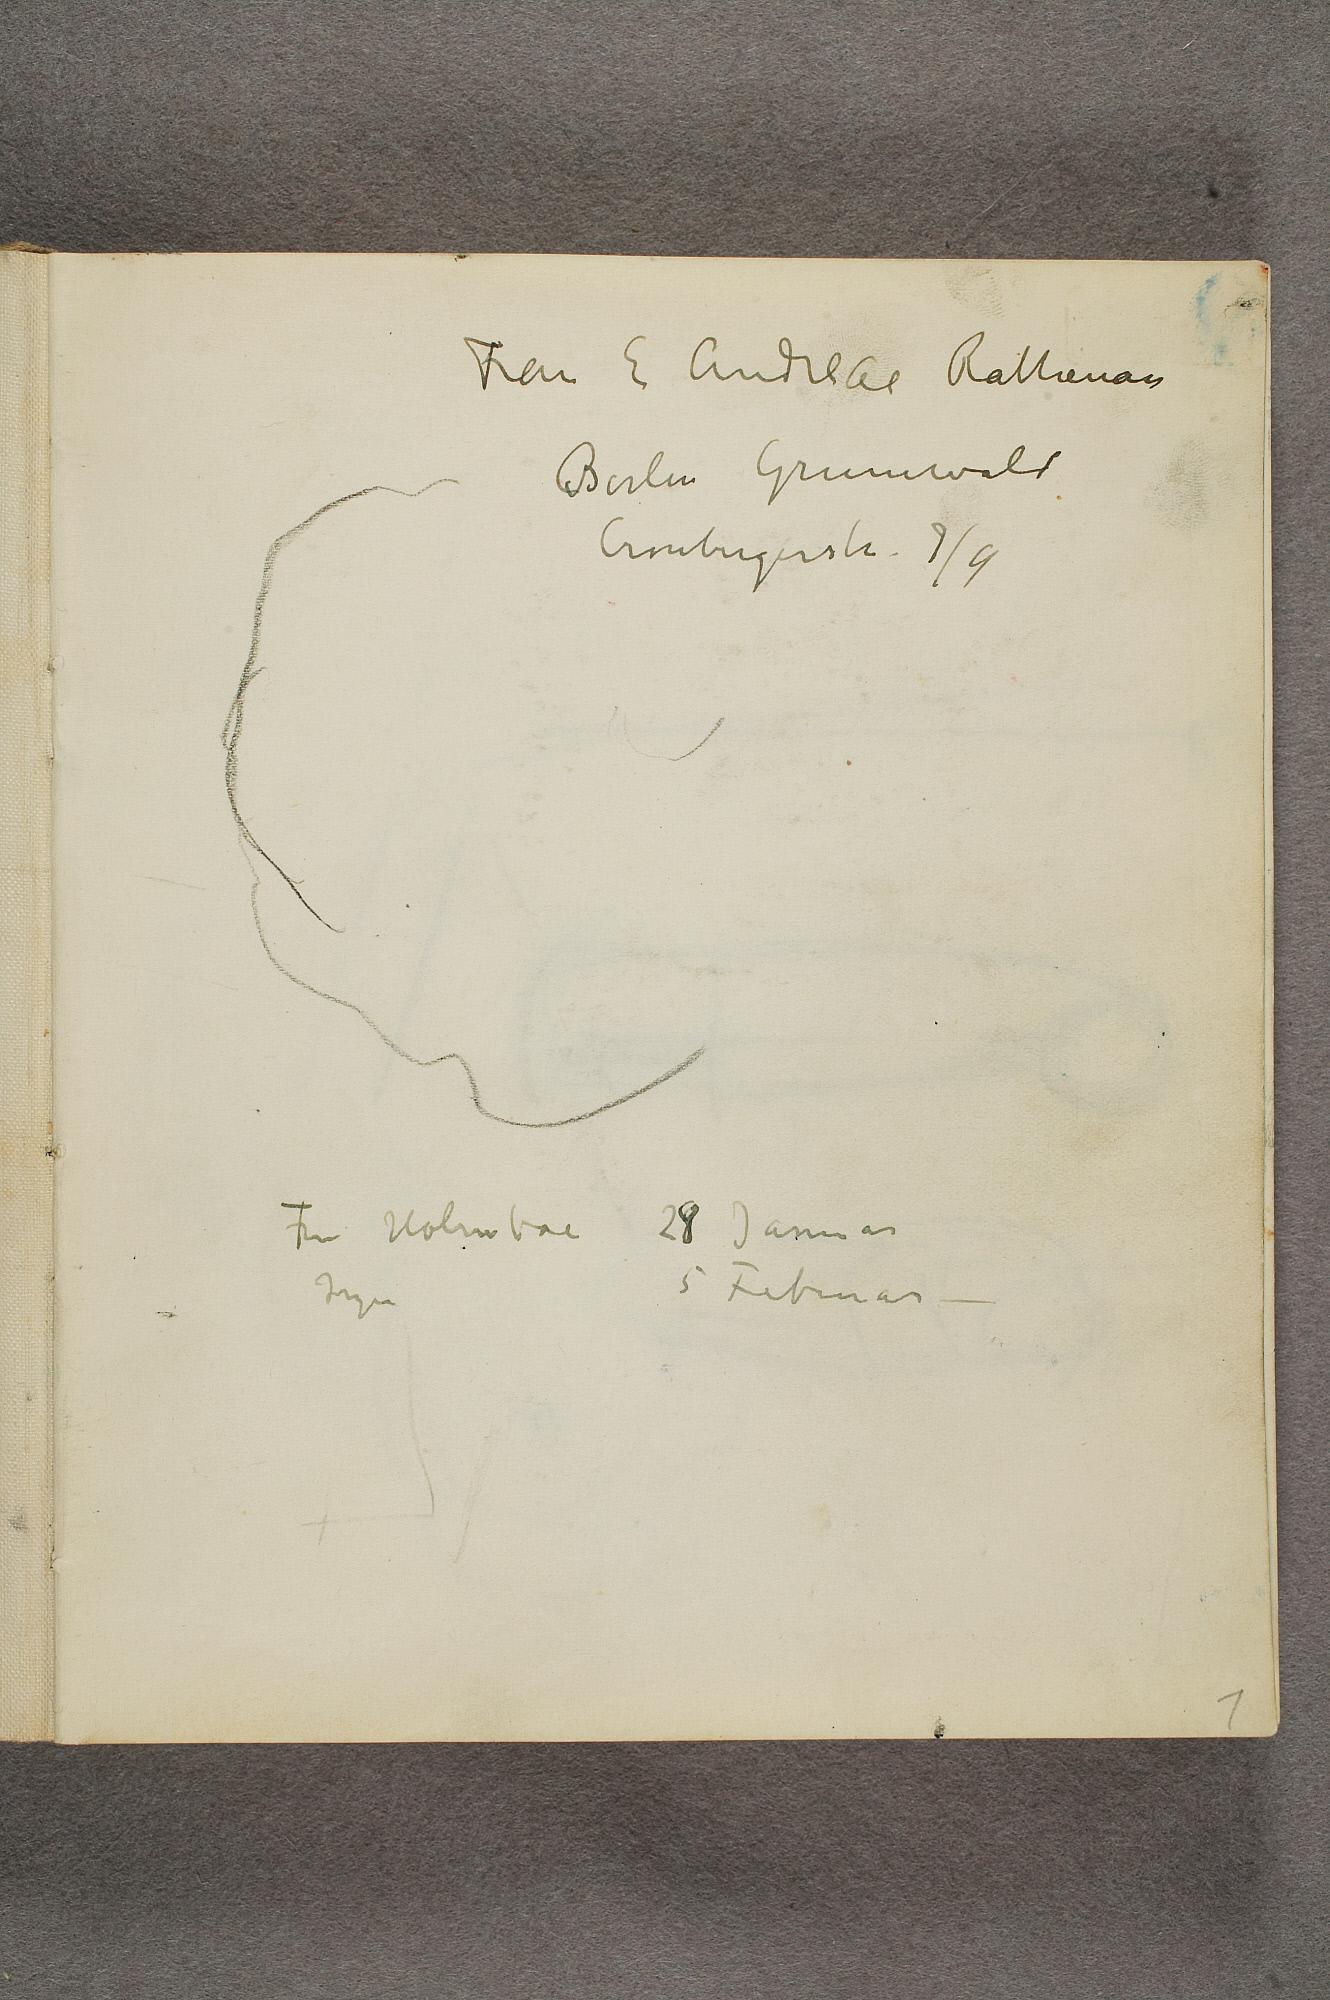 Frau E Andreae Rathenau
Berlin Grunewald
Cronbergerstr. 7/9
Fru Holmboe 28 Januar
Inger 5 Februar —
1